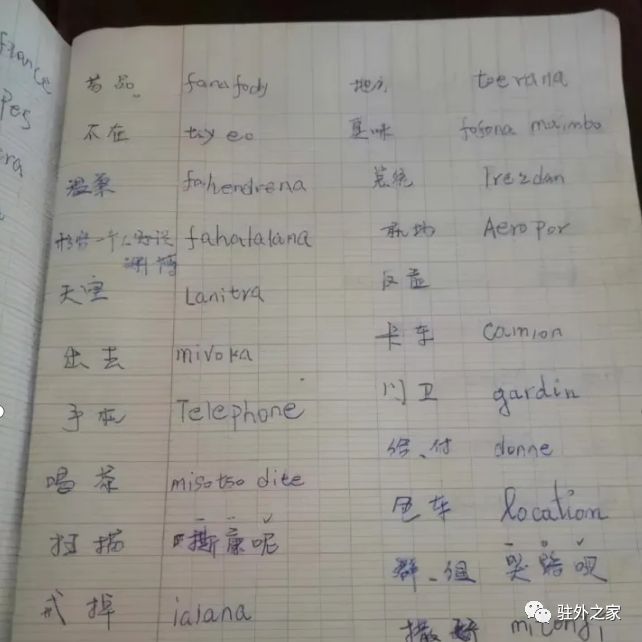 france
pes
era
药品 fanafody 地方 toerana
不在 tsy eo 臭味 fofona maimbo
温柔 fahendrena 总统 Prezdan
形容一个人好说 fahatalana 机场 Aeropor
天空 Lanitra
出去 mivoka 卡车 camion
手机 Telephone 门卫 gardin
喝茶 misotso dite 给、付 donne
扫描 斯康呢 包车 location
戒掉 ialana 群、组 哭路呗
驻外之家